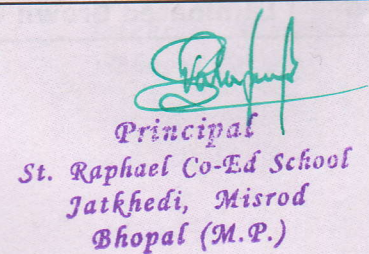 Principal
St. Raphael Co-Ed School
Jatkhedi, Misrod
Bhopal (M.P.)